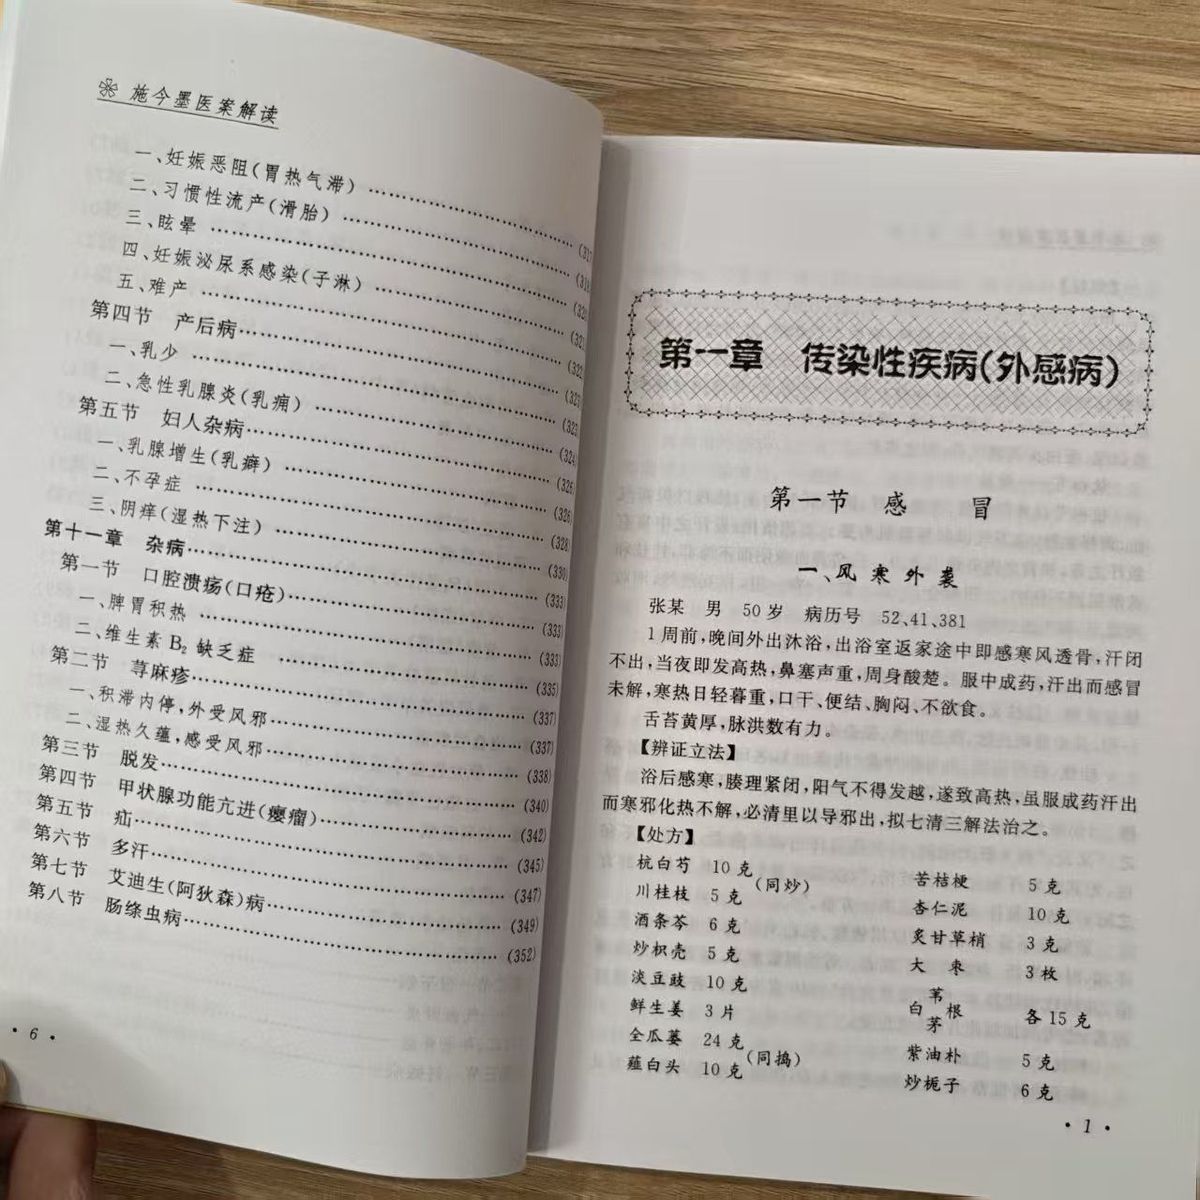 施今墨医案解读
一、妊娠恶阻(胃热气滞)……(317
二、习惯性流产(滑胎)……(318
三、眩晕……(320
四、妊娠泌尿系感染(子淋)……(321
五、难产……(322
第四节 产后病……(323
一、乳少……(323
二、急性乳腺炎(乳痈)……(324
第五节 妇人杂病……(326
一、乳腺增生(乳癖)……(326)
二、不孕症……(328)
三、阴痒(湿热下注)……(330)
第十一章 杂病……(333)
第一节 口腔溃疡(口疮)……(333)
一、脾胃积热……(333)
二、维生素B₂缺乏症……(335)
第二节 荨麻疹……(337)
一、积滞内停,外受风邪……(337)
二、湿热久蕴,感受风邪……(338)
第三节 脱发……(340)
第四节 甲状腺功能亢进(瘿瘤)……(342)
第五节 疝……(345)
第六节 多汗……(347)
第七节 艾迪生(阿狄森)病……(349)
第八节 肠绦虫病……(352)
· 6 ·
第一章 传染性疾病(外感病)
第一节 感 冒
一、风寒外袭
张某 男 50岁 病历号 52、41、381
1周前,晚间外出沐浴,出浴室返家途中即感寒风透骨,汗闭
不出,当夜即发高热,鼻塞声重,周身酸楚。服中成药,汗出而感冒
未解,寒热日轻暮重,口干、便结、胸闷、不欲食。
舌苔黄厚,脉洪数有力。
【辨证立法】
浴后感寒,腠理紧闭,阳气不得发越,遂致高热,虽服成药汗出
而寒邪化热不解,必清里以导邪出,拟七清三解法治之。
【处方】
杭白芍 10克
川桂枝 5克 (同炒)
酒条芩 6克
炒枳壳 5克
淡豆豉 10克
鲜生姜 3片
全瓜蒌 24克
薤白头 10克 (同捣)
苦桔梗 5克
杏仁泥 10克
炙甘草梢 3克
大 枣 3枚
白苇茅根 各15克
紫油朴 5克
炒栀子 6克
· 1 ·